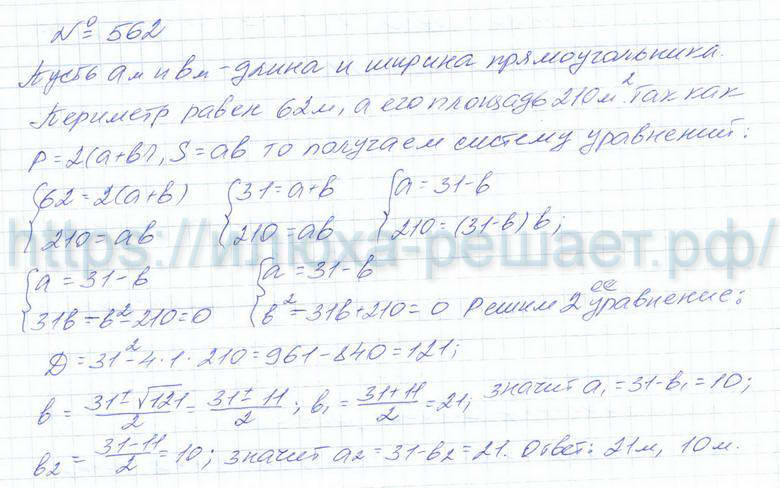 № 562
Пусть a м и b м - длина и ширина прямоугольника.
Периметр равен 62м, а его площадь 210м². Так как
P = 2(a+b), S = ab то получаем систему уравнений:
{62 = 2(a+b) {31 = a+b {a = 31-b
{210 = ab {210 = ab {210 = (31-b)b;
https://илюха-решает.рф/
{a = 31-b {a = 31-b
{31b-b²-210=0 {b²-31b+210=0 Решим 2ое уравнение:
D = 31²-4·1·210 = 961-840 = 121;
b = (31±√121)/2 = (31±11)/2; b₁ = (31+11)/2 = 21; значит a₁ = 31-b₁ = 10;
b₂ = (31-11)/2 = 10; значит a₂ = 31-b₂ = 21. Ответ: 21м, 10м.